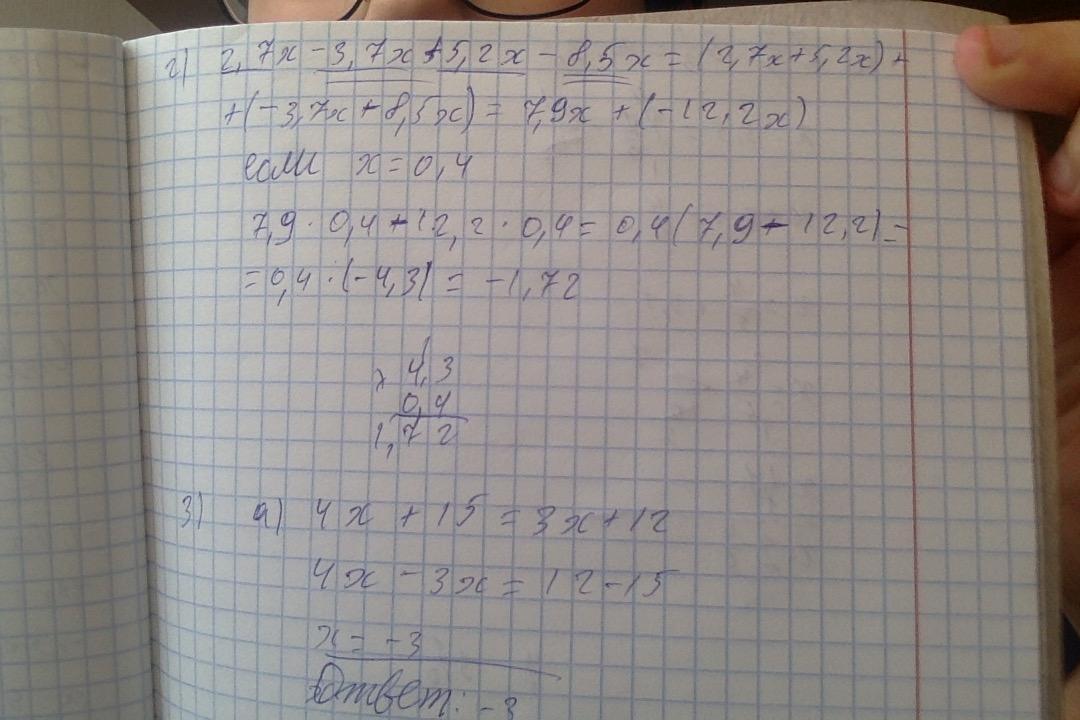 г) 2,7x - 3,7x + 5,2x - 8,5x = (2,7x + 5,2x) +
+ (-3,7x + 8,5x) = 7,9x + (-12,2x)
если x = 0,4
7,9 · 0,4 - 12,2 · 0,4 = 0,4 (7,9 - 12,2) =
= 0,4 · (-4,3) = -1,72
1
x 4,3
0,4
1,72
3) а) 4x + 15 = 3x + 12
4x - 3x = 12 - 15
x = -3
Ответ: -3